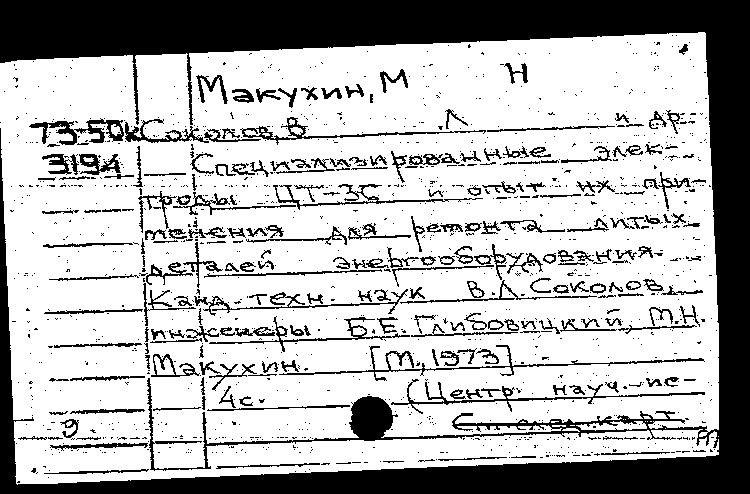 Макухин, М Н
73-50к Соколов, В Л и др.
3194 Специализированные элек-
троды ЦТ-3С и опыт их при-
менения для ремонта литых
деталей энергооборудования.
Канд. техн. наук В.Л. Соколов,
инженеры Б.Е. Глибовицкий, М.Н.
Макухин. [М., 1973].
4с. (Центр. науч.-ис-
Э См. след. карт.